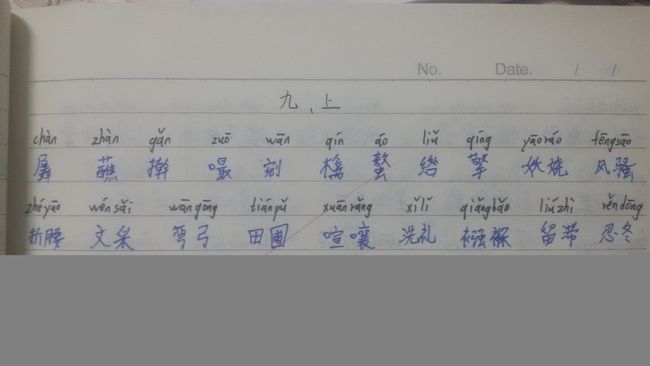 No. Date. / /
九、上
chàn zhàn gǎn zuō wān qín áo liǔ qíng yāoráo fēngsāo
蘸 擀 嘬 剜 螯 绺 擎 妖娆 风骚
zhéyāo wéncǎi wāngōng tiánpǔ xuānrǎng xǐlǐ qiǎngbǎo liúzhì rěndōng
折腰 文采 弯弓 田圃 喧嚷 洗礼 襁褓 留滞 忍冬